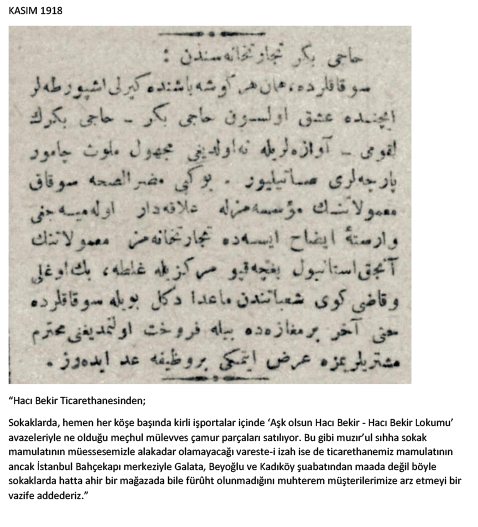 KASIM 1918
حاجی بكر تجارتخانه‌سندن :
سوقاقلرده، همان هر كوشه باشنده كیرلی اشپورطه‌لر
ایچنده عشق اولسون حاجی بكر – حاجی بكرك
لقومی – آوازه‌لریله نه‌اولدیغی مجهول ملوث چامور
پارچه‌لری صاتیلیور . بو كبی مضر الصحه سوقاق
معمولاتنك مؤسسه‌مزله علاقه‌دار اوله‌میه‌جغی
وارستهٔ ایضاح ایسه‌ده تجارتخانه‌مز معمولاتنك
آنجق استانبول بغچه‌قپو مركزیله غلطه، بك‌اوغلی
وقاضی كوی شعباتندن ماعدا دكل بویله سوقاقلرده
حتی آخر بر مغازه‌ده بیله فروخت اولنمدیغنی محترم
مشتریلریمزه عرض ایتمكی بر وظیفه عد ایده‌رز .
“Hacı Bekir Ticarethanesinden;
Sokaklarda, hemen her köşe başında kirli işportalar içinde ‘Aşk olsun Hacı Bekir - Hacı Bekir Lokumu’
avazeleriyle ne olduğu meçhul mülevves çamur parçaları satılıyor. Bu gibi muzır’ul sıhha sokak
mamulatının müessesemizle alakadar olamayacağı vareste-i izah ise de ticarethanemiz mamulatının
ancak İstanbul Bahçekapı merkeziyle Galata, Beyoğlu ve Kadıköy şuabatından maada değil böyle
sokaklarda hatta ahir bir mağazada bile fürûht olunmadığını muhterem müşterilerimize arz etmeyi bir
vazife addederiz.”